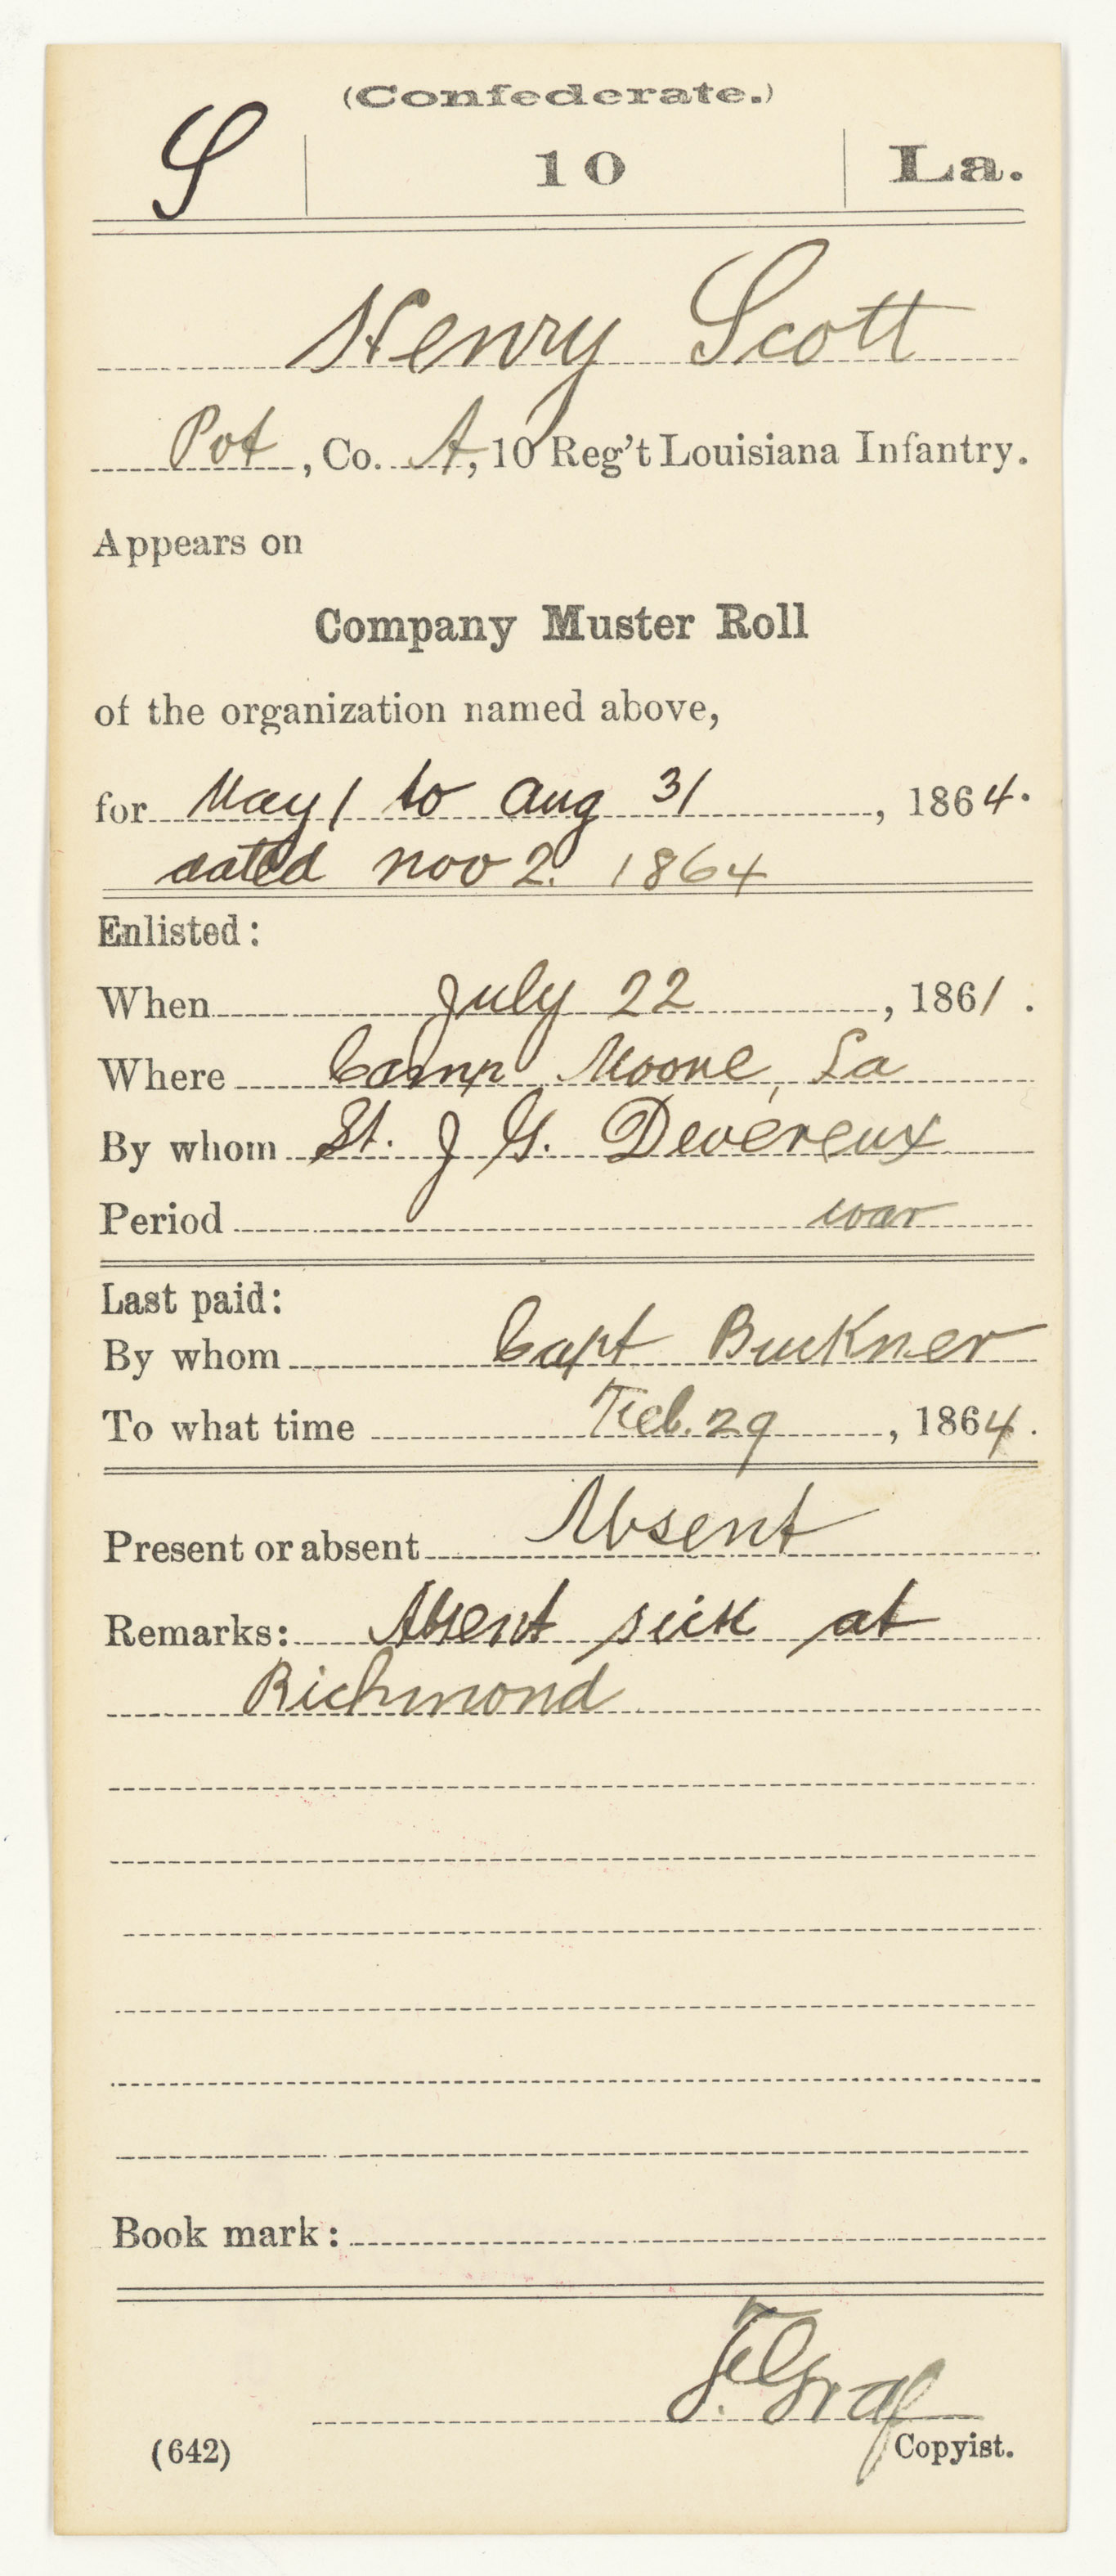 (Confederate.)
S | 10 | La.
Henry Scott
Pvt, Co. A, 10 Reg't Louisiana Infantry.
Appears on
Company Muster Roll
of the organization named above,
for May 1 to Aug 31, 1864.
dated Nov 2. 1864
Enlisted:
When July 22, 1861.
Where Camp Moore, La
By whom Lt. J G. Devereux
Period war
Last paid:
By whom Capt Buckner
To what time Feb. 29, 1864.
Present or absent Absent
Remarks: Absent sick at
Richmond
Book mark:
F. Graf
(642) Copyist.